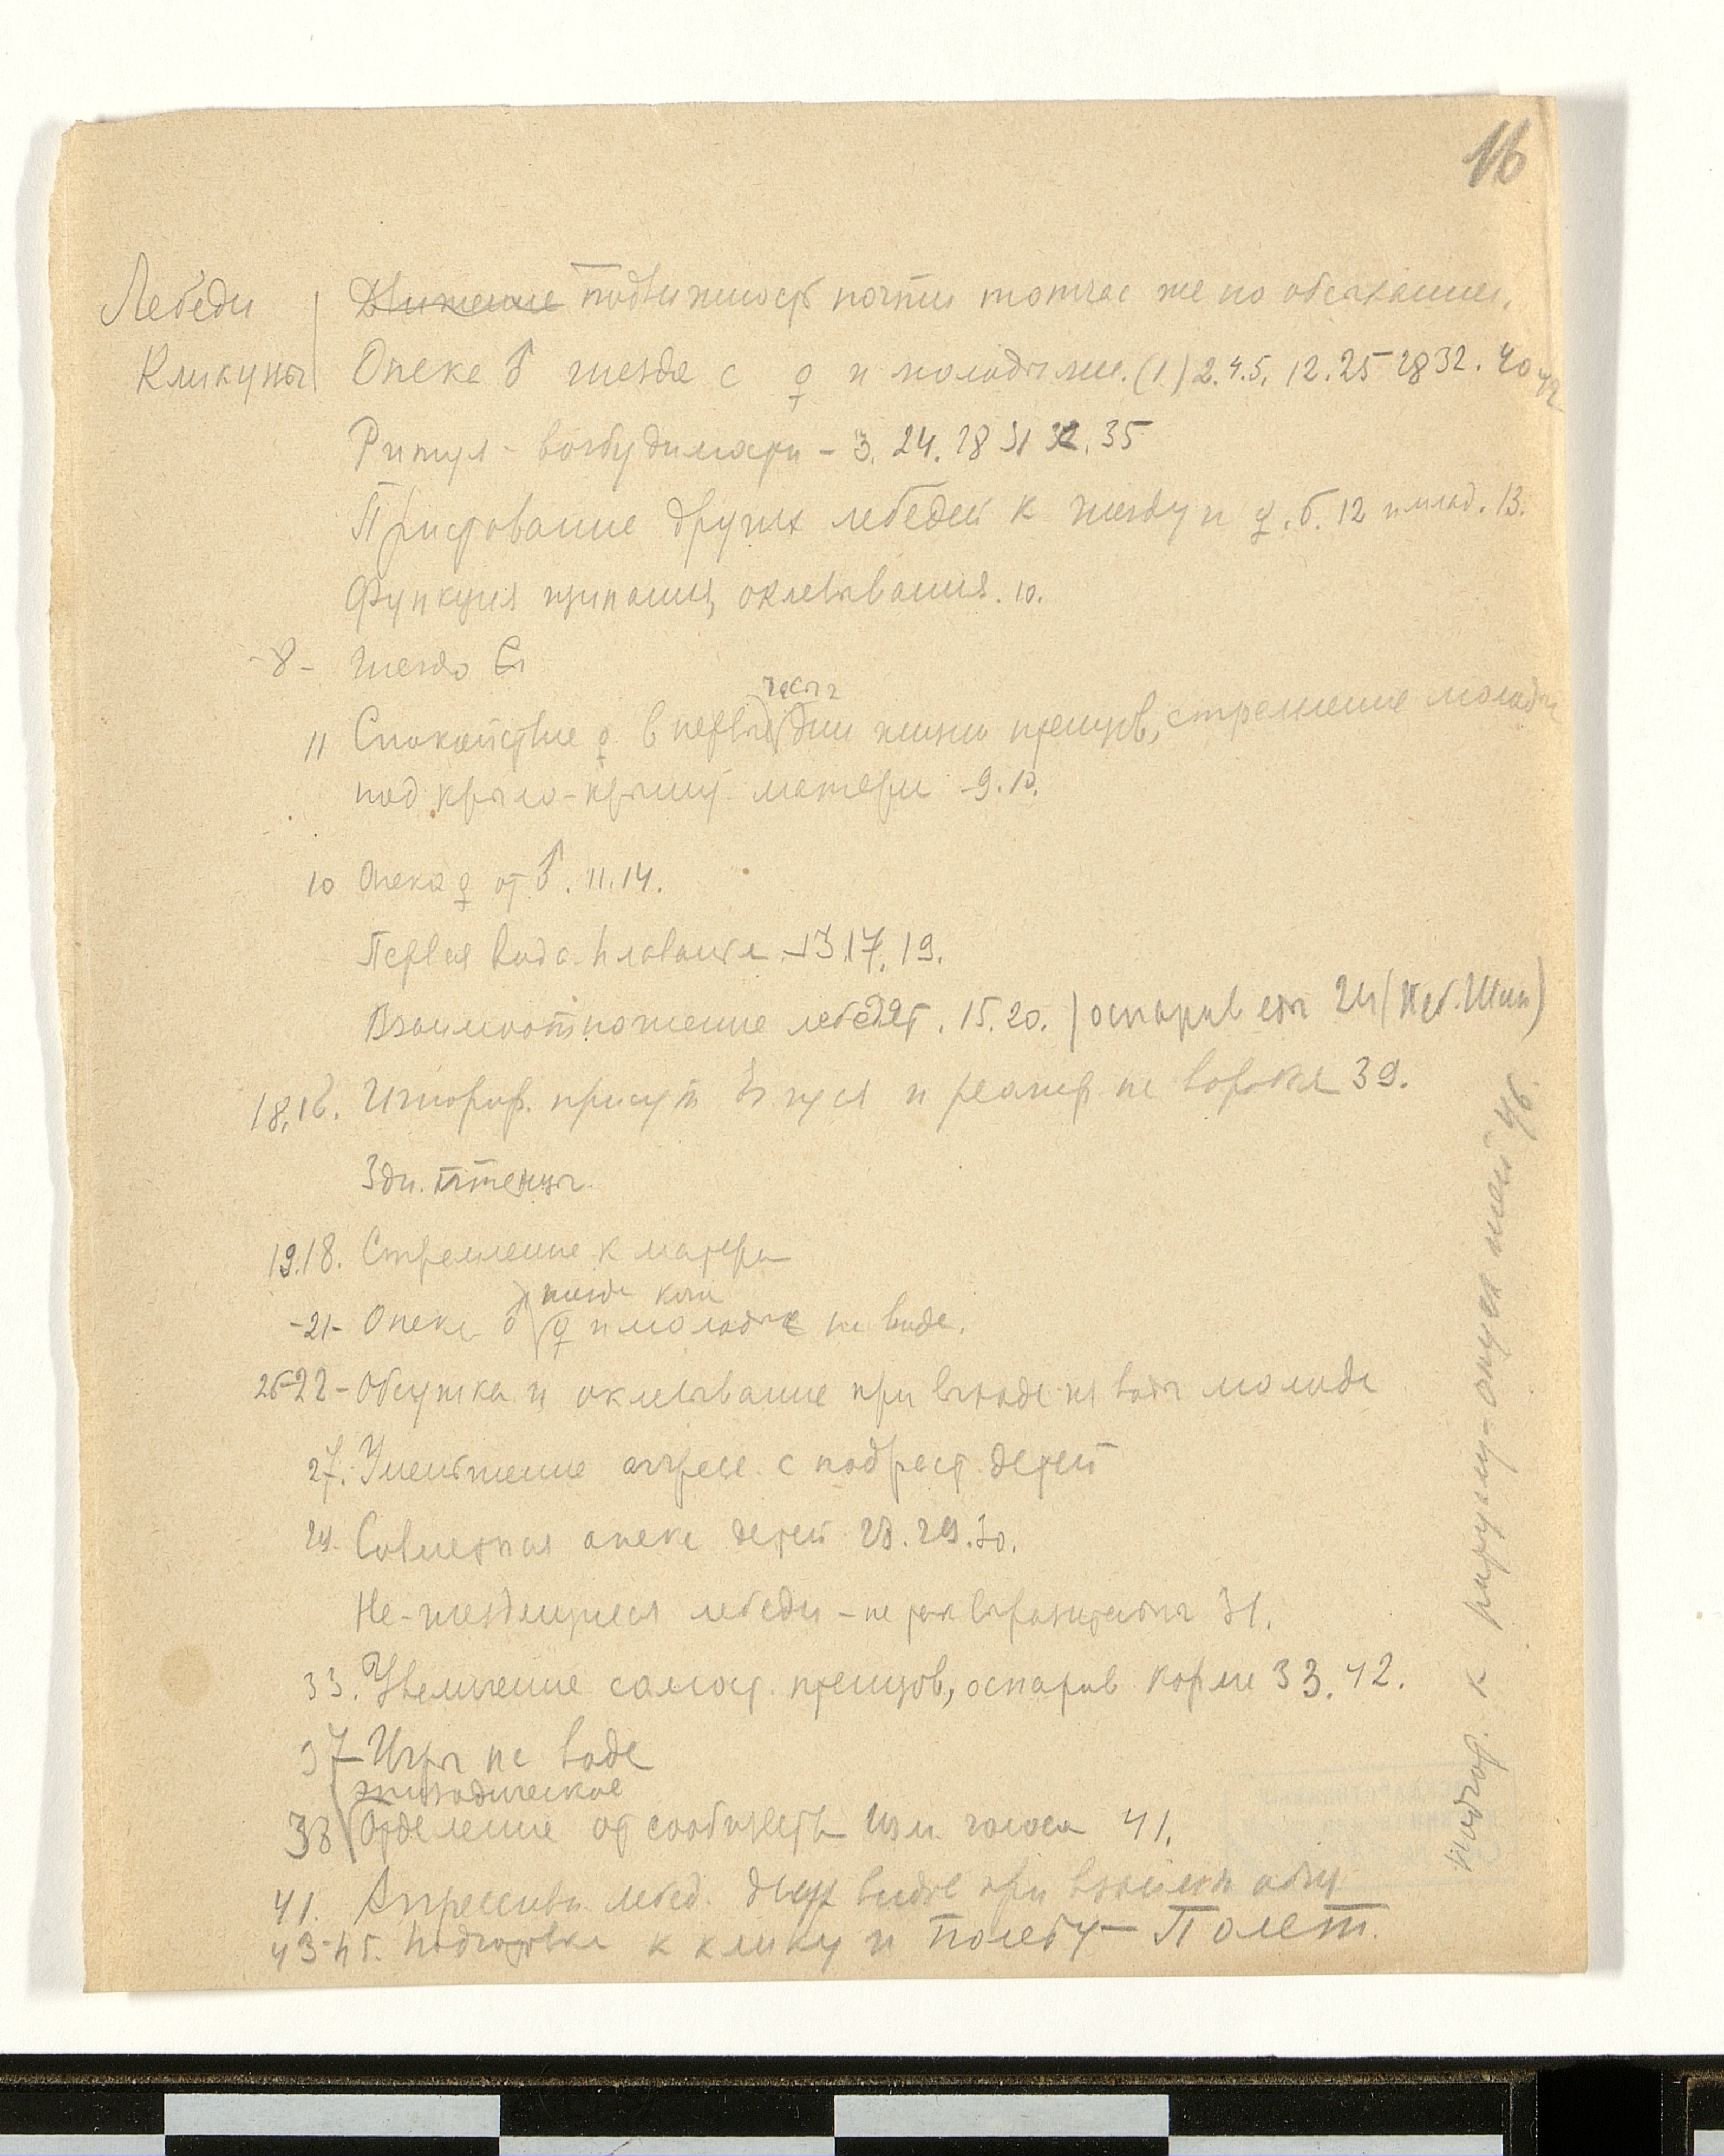 16
Лебеди Движение подвижность почти тотчас же по обсыхании.
Кликуны Опека ♂ гнезда с ♀ и молодыми. (1) 2.4.5. 12.25 28 32. 40 42
Ритуал - возбудимости - 3. 24. 28 31 32. 35
Присрование других лебедей к гнезду и ♀. 6. 12 и млад. 13.
Функция щипания, оклевывания. 10.
-8- Гнездо
часы
11 Спокойствие ♀ в первые дни жизни птенцов, стремление молодых
под крыло-крышу матери -9.10.
10 Опека ♀ от ♂. 11.14.
Первая вода. Плавание -13.17. 19.
Взаимоотношение лебедят. 15.20. оспарив еды 24 (Леб. Шип)
18.16. Игнорир. присут. гуся и реакция на ворона 39.
3 дн. птенцы.
19.18. Стремление к матери
гнезда
-21- Опека ♂ ♀ и молодых на воде.
26-22- Обсушка и оклевывание при выходе из воды молоди
27. Уменьшение агресс. с подраст. детей
29. Совместная опека детей 28.29.30.
Не-гнездящиеся лебеди - не так 31.
33. Увеличение самост. птенцов, оспарив корма 33. 42.
37- Игры на воде
эпизодическое
38 Отделение от сообщества Изм. голоса 41.
41. Агрессивн. лебед. двух видов при
43-45. Подготовка к клику и полету - Полет.
Подгот. к ритуалу - опуск шеи 46.